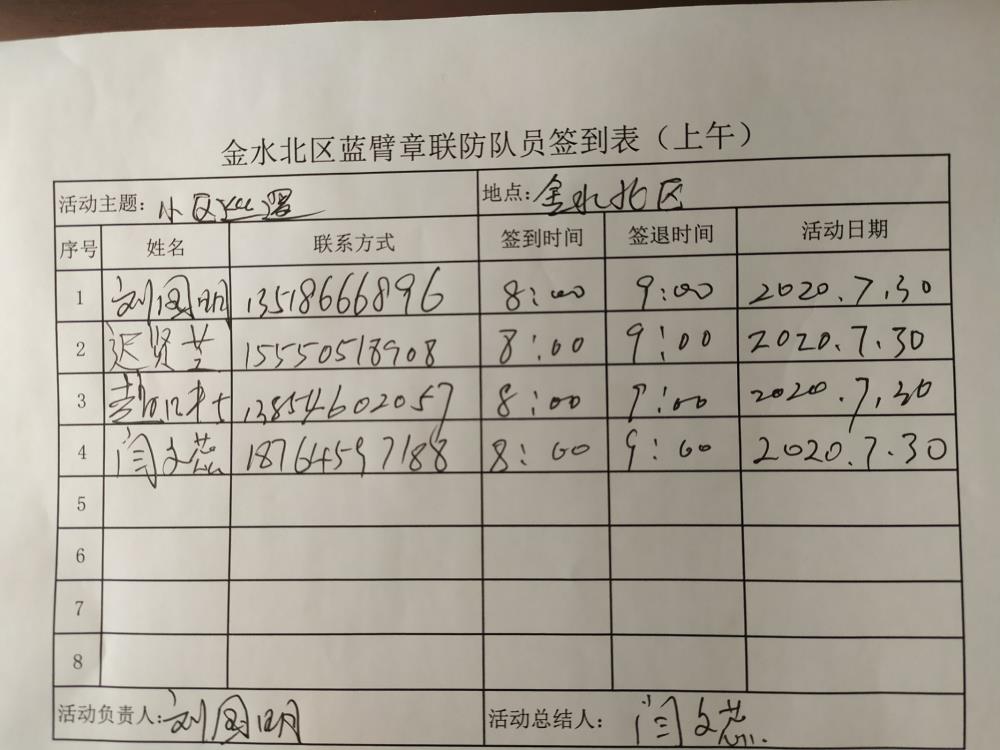 金水北区蓝臂章联防队员签到表（上午）
活动主题：小区巡逻 地点：金水北区
序号 姓名 联系方式 签到时间 签退时间 活动日期
1 刘国明 13518666896 8:00 9:00 2020.7.30
2 迟贤 15550518908 8:00 9:00 2020.7.30
3 13854602057 8:00 9:00 2020.7.30
4 闫文蕊 18764597188 8:00 9:00 2020.7.30
5
6
7
8
活动负责人：刘国明 活动总结人：闫文蕊